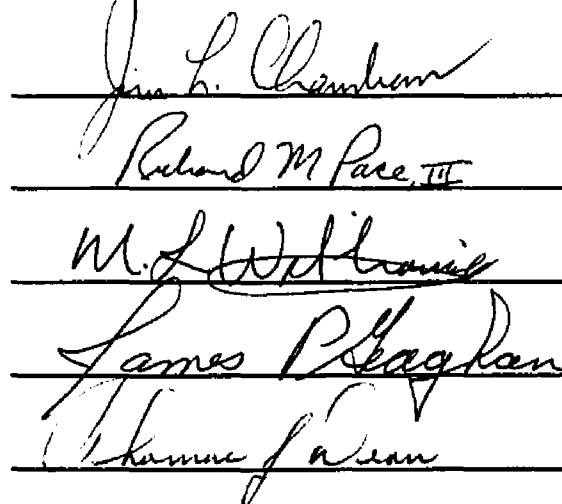 Jim L. Chambers
Richard M Pace, III
M. L.
James P Geaghan
Thomas J Dean